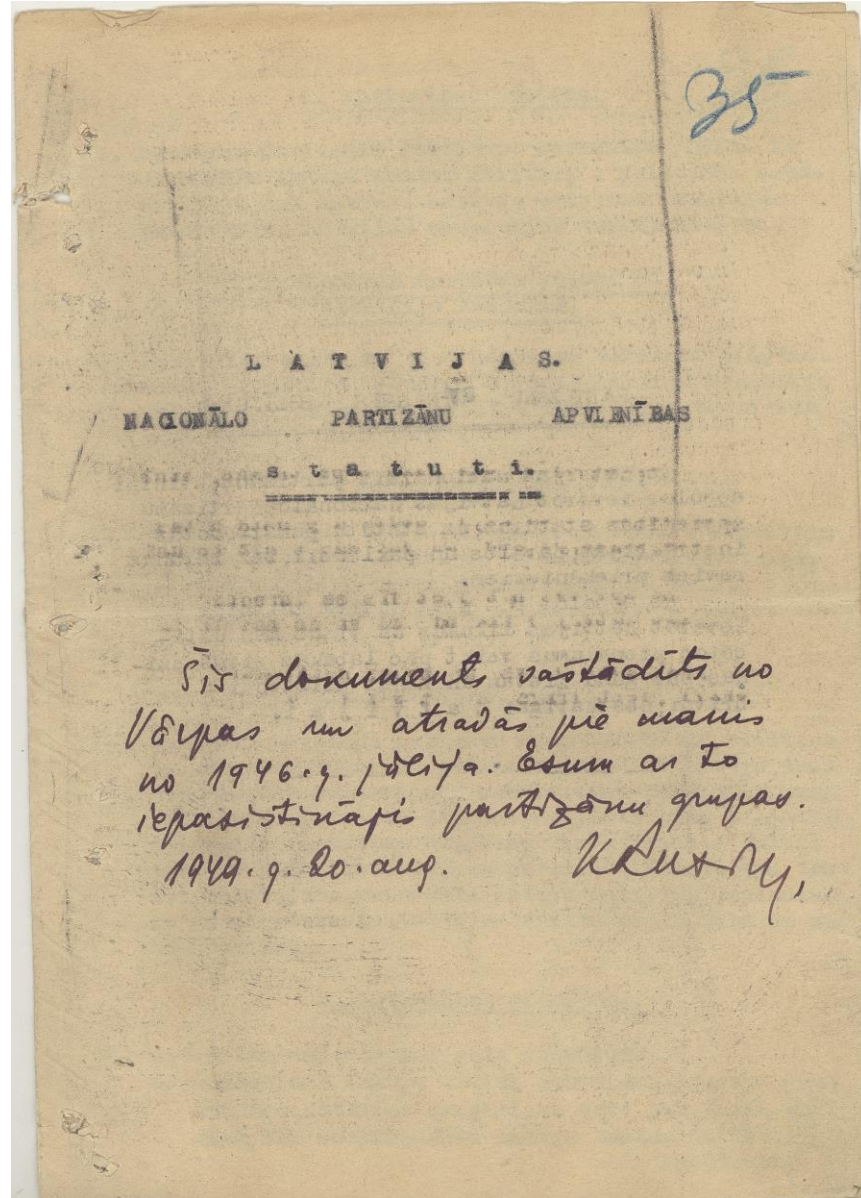 35
L A T V I J A S.
NACIONĀLO PARTIZĀNU APVIENĪBAS
s t a t u t i.
Šis dokuments sastādīts no
Vārpas un atradās pie manis
no 1946.g. jūlija. Esmu ar to
iepazistinājis partizānu grupas.
1949.g. 20.aug.